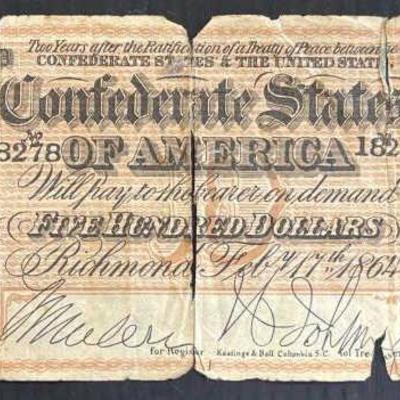 Two Years after the Ratification of a Treaty of Peace between the
CONFEDERATE STATES & THE UNITED STATES
Confederate States
No
8278 OF AMERICA 182
Will pay to the bearer on demand
FIVE HUNDRED DOLLARS
Richmond Feby. 17th 1864
for Register Keatinge & Ball Columbia S.C. for Trea